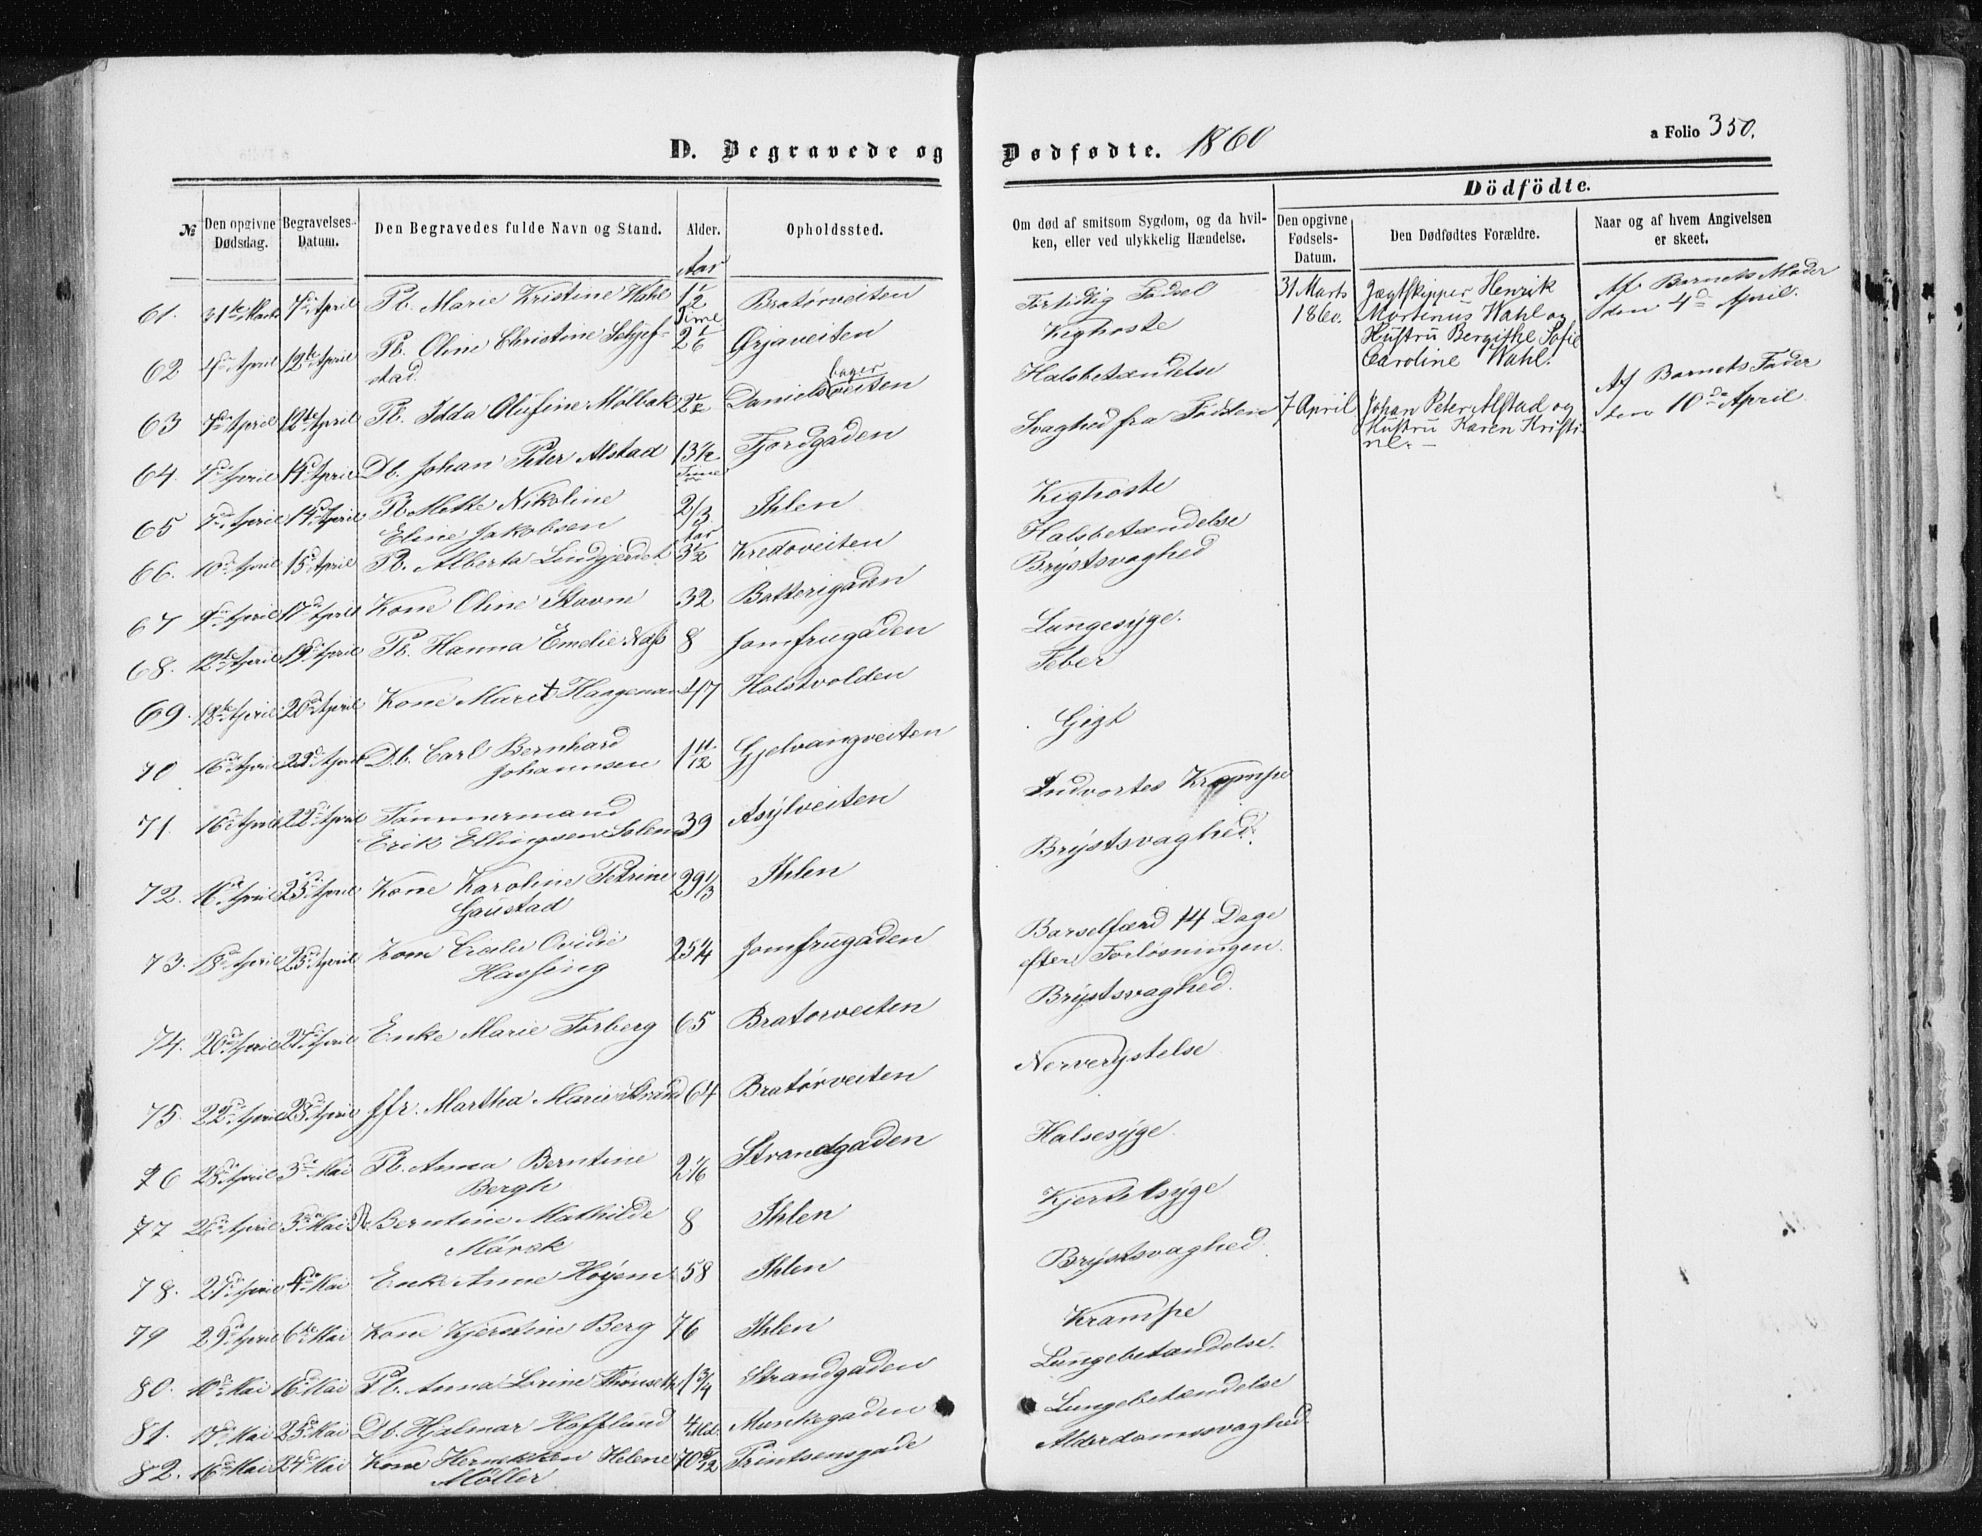 D. Begravede og Dødfødte. 1860
a Folio 350.
Dödfödte.
№ Den opgivne Dødsdag. Begravelses-Datum. Den Begravedes fulde Navn og Stand. Alder. Opholdssted. Om død af smitsom Sygdom, og da hvilken, eller ved ulykkelig Hændelse. Den opgivne Fødsels-Datum. Den Dødfødtes Forældre. Naar og af hvem Angivelsen er skeet.
Aar
61. 31te Marts 4de April Pb. Marie Kristine Wahl 1/2 Time Bratørveiten Fortidlig Fødsel 31 Marts 1860. Jægtskipper Henrik Martinus Wahl og Hustru Bergithe Sofie Caroline Wahl. Af Barnets Moder den 4de April.
62 4de April 12te April Pb. Oline Christine Schjefstad 2 1/6 Grjaveiten Kighoste
63 7de April 12te April Pb. Idda Olufine Mølbak 2 1/2 Danielsveiten Halsbetændelse
64. 7de April 14de April Db. Johan Peter Alstad 13 1/2 Time Fjordgaden Svaghed fra Fødslen 7 April Johan Peter Alstad og Hustru Karen Kristine.- Af Barnets Fader den 10de April
65 7de April 14de April Pb. Mette Nikoline Eline Jakobsen 2/3 Aar Ihlen Kighoste
66. 10de April 15de April Pb. Alberta 3 1/2 Kredoveiten Halsbetændelse
67 9de April 17de April Kone Oline Stavne 32 Batterigaden Brystsvaghed
68. 12te April 19de April Pb. Hanna Emelie Næss 8 Jomfrugaden Lungesyge.
69. 18de April 20de April Kone Marit Haageman 47 Holstvolden Feber
70 16de April 22de April Db. Carl Bernhard Johannsen 1 11/12 Gjelvangveiten Gigt
71. 16de April 22de April Tømmermand Erik Ellingsen Solem 39 Asylveiten Indvortes Krampe
72. 16de April 25de April Kone Karoline Petrine Gaustad 29 1/3 Ihlen Brystsvaghed.
73. 18de April 25de April Kone Ovidie Hassing 25 1/4 Jomfrugaden Barselfærd 14 Dage efter Forløsningen.
74. 20de April 27de April Enke Marie Forberg 65 Bratørveiten Brystsvaghed.
75. 22de April 28de April Jfr. Martha Marie Strand 64 Bratørveiten Nerverystelse
76 25de April 3de Mai Pb. Anna Berntine Bergh 2 1/6 Strandgaden Halsesyge.
77 26de April 3de Mai Pb. Berntine Mathilde Mørck 8 Ihlen Kjertelsyge
78. 27de April 4de Mai Enke Anne Høyem 58 Ihlen Brystsvaghed.
79 29de April 6te Mai Kone Kjerstine Berg 76 Ihlen Krampe
80. 10de Mai 16de Mai Pb. Anna Lorine Thonseth 1 3/4 Strandgaden Lungebetændelse.
81. 17de Mai 25de Mai Db. Hjalmar Hoffland 4 Md. Munkegaden Lungebetændelse
82. 16de Mai 24de Mai Kone Henrikken Helene Møller 70 5/12 Printsensgade Alderdomssvaghed